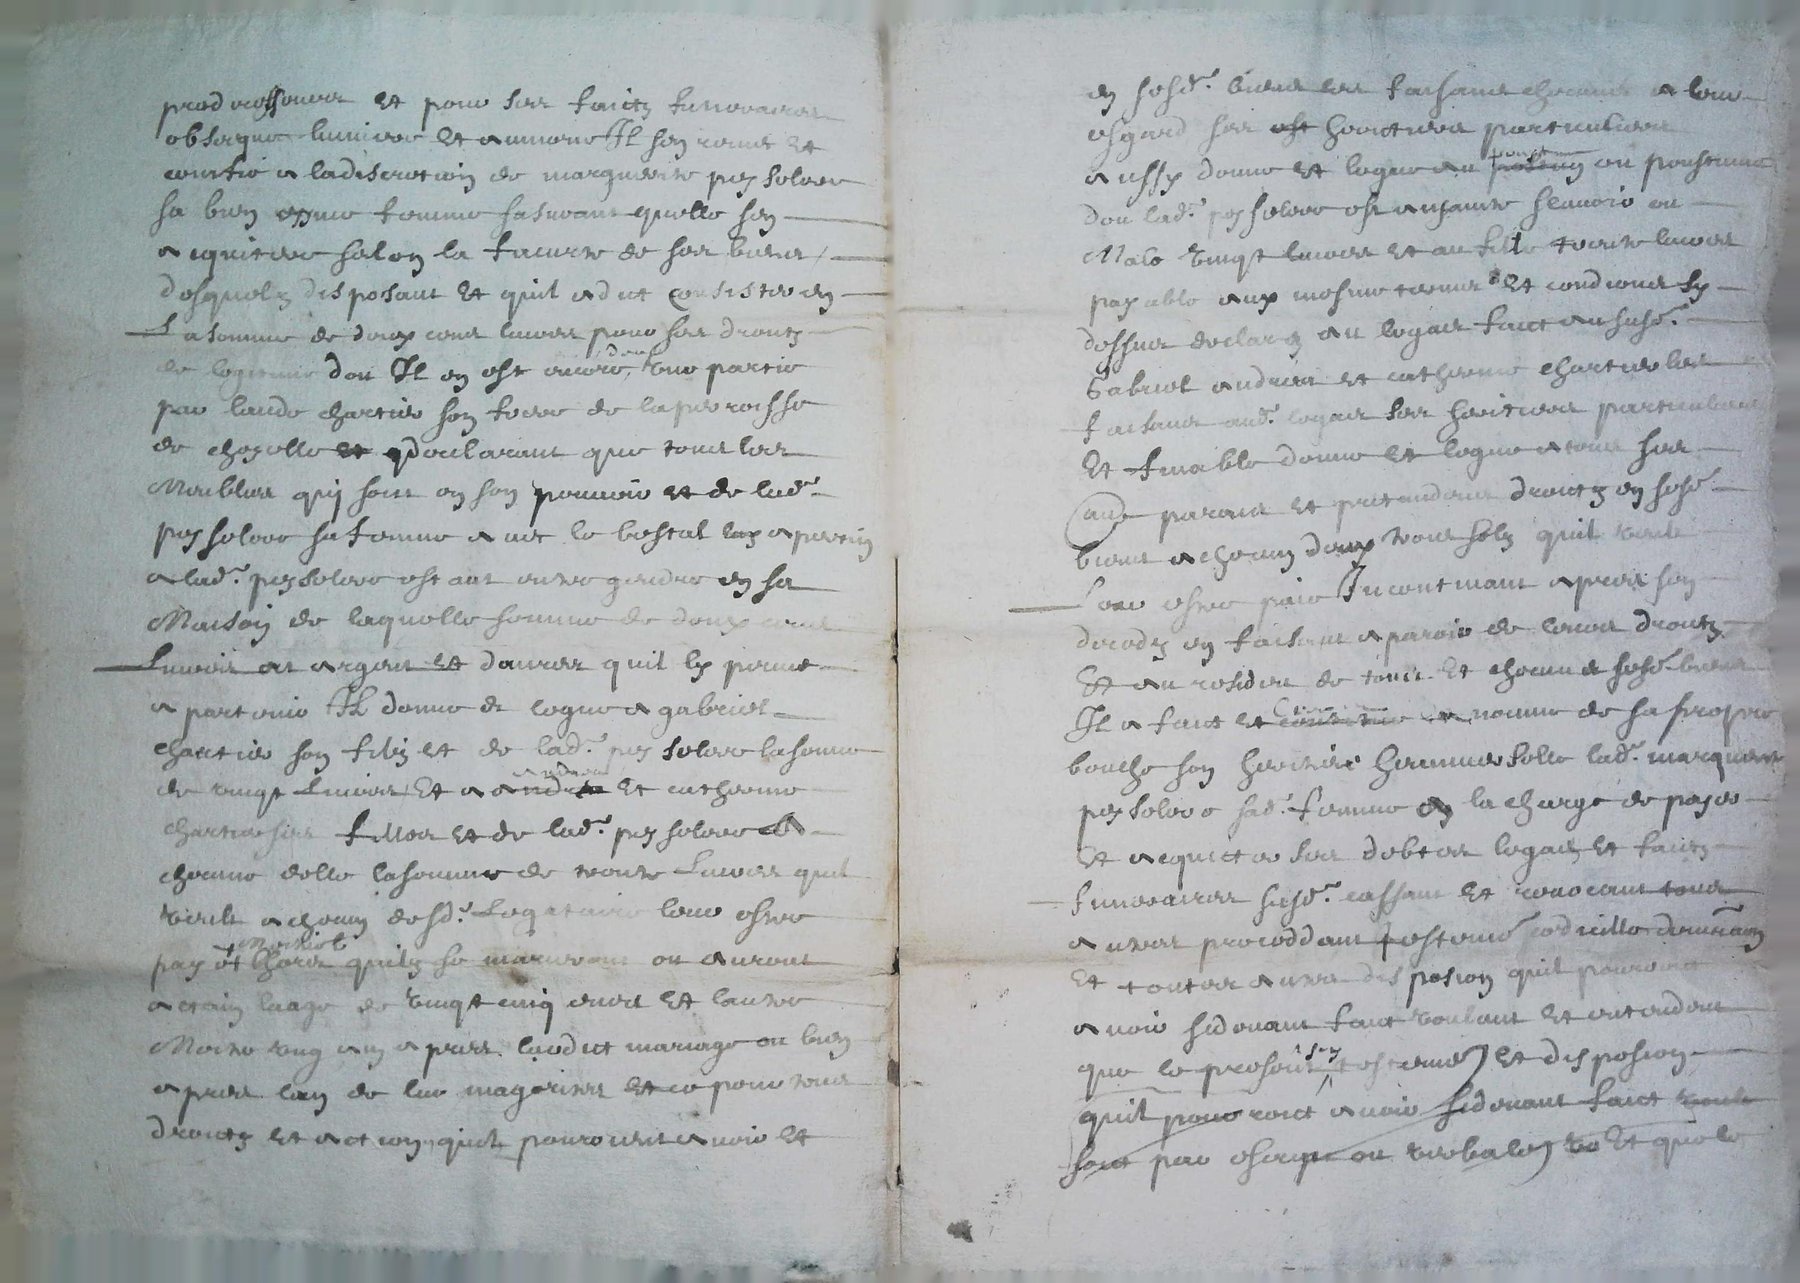 predicessours et pour ses faictz funeraires
obseque lumiere et aumone Il sen remet et
confie a la discrétion de marguerite peyssolere
sa bien eyme femme sasurant quelle sen
aquitere selon la faculte de ses biens
desquelz disposant et quil a dit consister en
La somme de deux cens livres pour ses droitz
de legitime don Il en est encore deub une partie
par laude chartier son frere de la perroisse
de et declarant que tous les
Meubles quy sont en son pouvoir et de lad.
peyssolere sa femme avec le bestal apertien
a lad. peyssolere estant entre gendre en sa
Maison de laquelle somme de deux cens
Livres et argent et danrees quil ly peuve
apartenir Il donne et legue a gabriel
chartier son filz et de lad. peyssolere la somme
de vingt Livres Et a andree Et catherine
chartier ses filles et de lad. peyssolere a
chacune delle la somme de trente Livres quil
veult a chacun desd. Legataire leur estre
paye quilz se mariront ou auront
atain laage de vingt cinq ans et lautre
Moitie ung an apres leurdit mariage ou bien
apres lan de leur mageurites et ce pour tous
droitz et action quilz pouroient avoir et
en sesd. biens les faisant chacuns a leur
esgard ses est heretiers particuliers
aussy donne et legue au postume ou poustume
don lad. peyssolere est ansainte si cavoir au
Male vingt livres et au fille trente livres
payable aux mesme termes et condicions sy
dessus declarez au legat faict au susd.
Gabriel andree et catherine chartier les
faisant aud. legat ses heritiers particuliers
Et finable donne et legue a tous ses
autres parans et pretendens droitz en sesd.
biens a chacun deux trois solz quil veult
Leur estre paie Incontinant apres son
decedz en faisant aparoir de leurs droitz
Et au residu de tous et chacun sesd. biens
Il a faict et nomme de sa propre
bouche son heritiere huniverselle lad. marguerite
peyssolere sad. femme a la charge de payer
Et aquicter ses debtes legatz et faictz
funeraires susd. cassant et revocant tous
autres preceddant testemens codicille donnacion
Et toutes autres disposion quil pouroict
avoir sidevant faict voulant et entendent
que le presant sien testemens et disposion
quil pouroict avoir sidevant faict
soict par escript ou verbales et que le